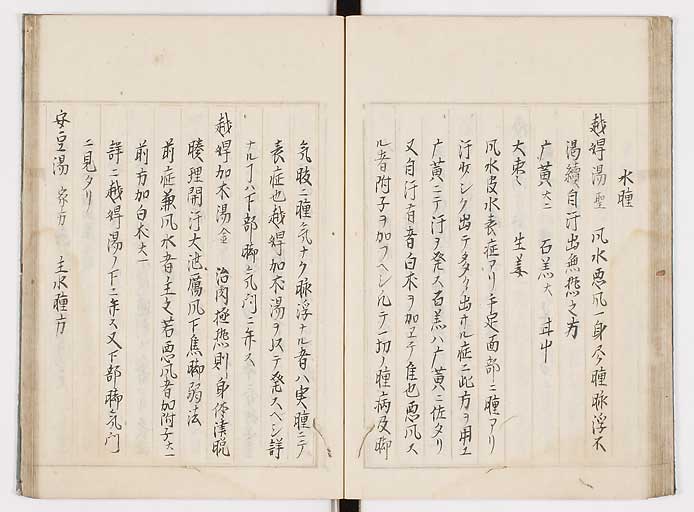 水腫
越婢湯 聖 風水悪風一身尽ク腫脉浮不
渇續自汗出無熱之方
广黄大二 石羔大 甘中
大棗々 生姜
風水皮水表症アリ手足面部ニ腫アリ
汗少シク出テ多ク出サル症ニ此方ヲ用ユ
广黄ニテ汗ヲ発ス石羔ハ广黄ニ佐タリ
又自汗有者白朮ヲ加ヱテ佳也悪風ス
ル者附子ヲ加フヘシ凡テ一切ノ腫病及脚
気肢ニ腫気ナク脉浮ナル者ハ実腫ニテ
表症也越婢加朮湯ヲ以テ発スヘシ詳
ナルヿハ下部脚気門ニ示ス
越婢加朮湯 金 治肉極熱則身体津脱
腠理開汗大泄厲風下焦脚弱法
前症兼風水者主之若悪風者加附子大一
前方加白朮大一
詳ニ越婢湯ノ下ニ示ス又下部脚気門
ニ見タリ
安豆湯 家方 主水腫方